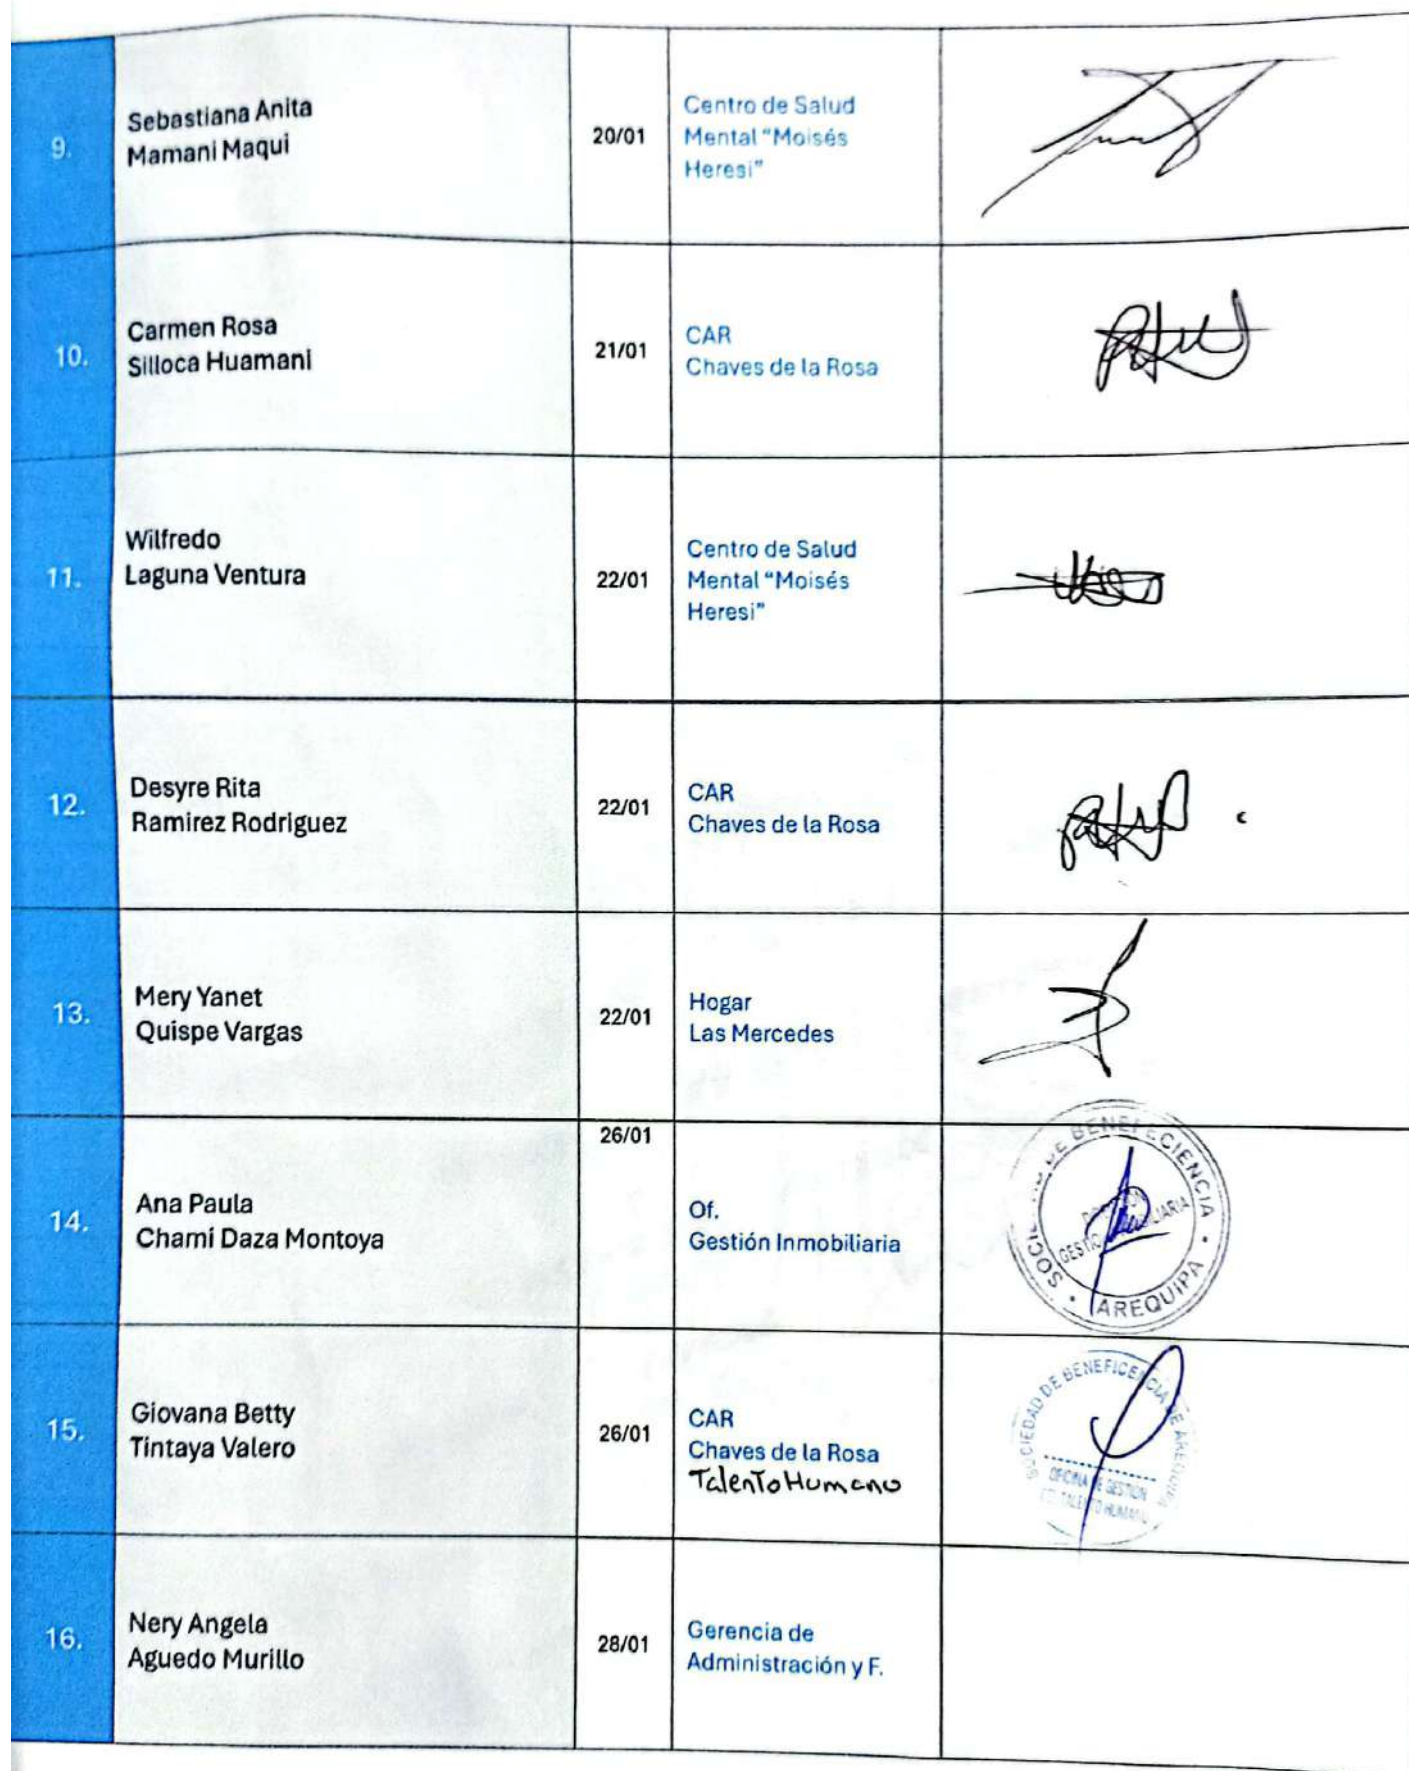 9.
Sebastiana Anita
Mamani Maqui
20/01
Centro de Salud
Mental "Moisés
Heresi"
10.
Carmen Rosa
Silloca Huamani
21/01
CAR
Chaves de la Rosa
11.
Wilfredo
Laguna Ventura
22/01
Centro de Salud
Mental "Moisés
Heresi"
12.
Desyre Rita
Ramirez Rodriguez
22/01
CAR
Chaves de la Rosa
13.
Mery Yanet
Quispe Vargas
22/01
Hogar
Las Mercedes
14.
Ana Paula
Chamí Daza Montoya
26/01
Of.
Gestión Inmobiliaria
DE BENEFECIENCIA
AREQUIPA
15.
Giovana Betty
Tintaya Valero
26/01
CAR
Chaves de la Rosa
Talento Humano
SOCIEDAD DE BENEFICENCIA DE AREQUIPA
OFICINA DE GESTION
TALENTO HUMANO
16.
Nery Angela
Aguedo Murillo
28/01
Gerencia de
Administración y F.